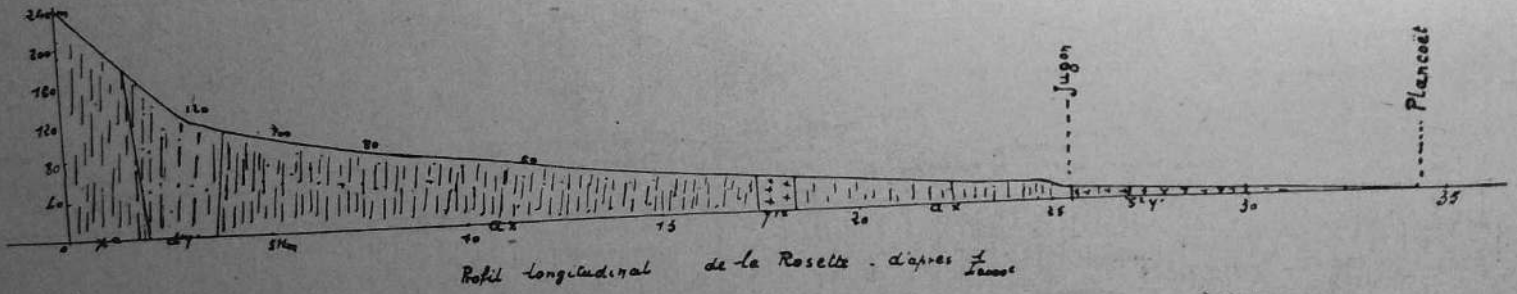 240m
200
160
120
80
40
120
100
80
60
Jugon
Plancoët
0
5Km
10
15
20
25
30
35
Profil longitudinal de la Rosette . d'après